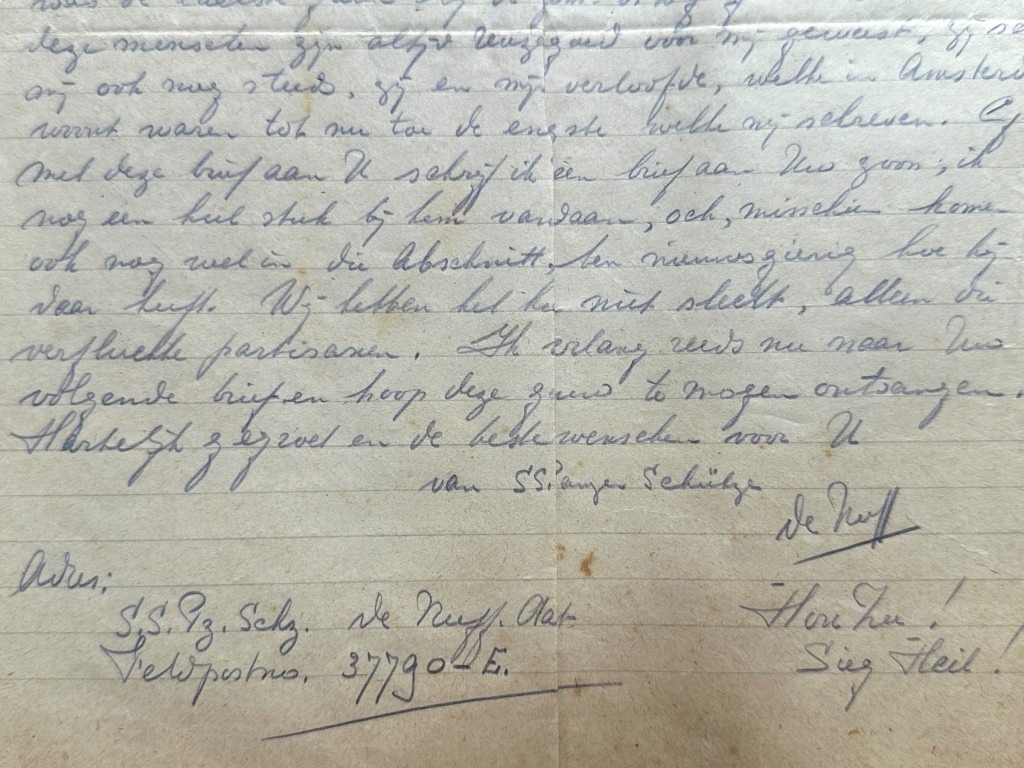 deze menschen zijn altijd reuzegoed voor mij geweest, zij
mij ook nog steeds, zij en mijn verloofde, welke in Amsterd
woont waren tot nu toe de enigste welke mij schreven.
met deze brief aan U schrijf ik een brief aan Uw zoon, ik
nog een heel stuk bij hem vandaan, och, misschien kome
ook nog wel in die Abschnitt, ben nieuwsgierig hoe hij
daar heeft. Wij hebben het hier niet slecht, alleen die
verfluchte partisanen. Ik verlang reeds nu naar Uw
volgende brief en hoop deze gauw te mogen ontvangen.
Hartelijk gegroet en de beste wenschen voor U
van SS Panzer Schütze
de Nuff
Adres:
S.S. Pz. Schz. de Nuff. Aat
Feldpostno. 37790-E.
Hou Zee!
Sieg Heil!